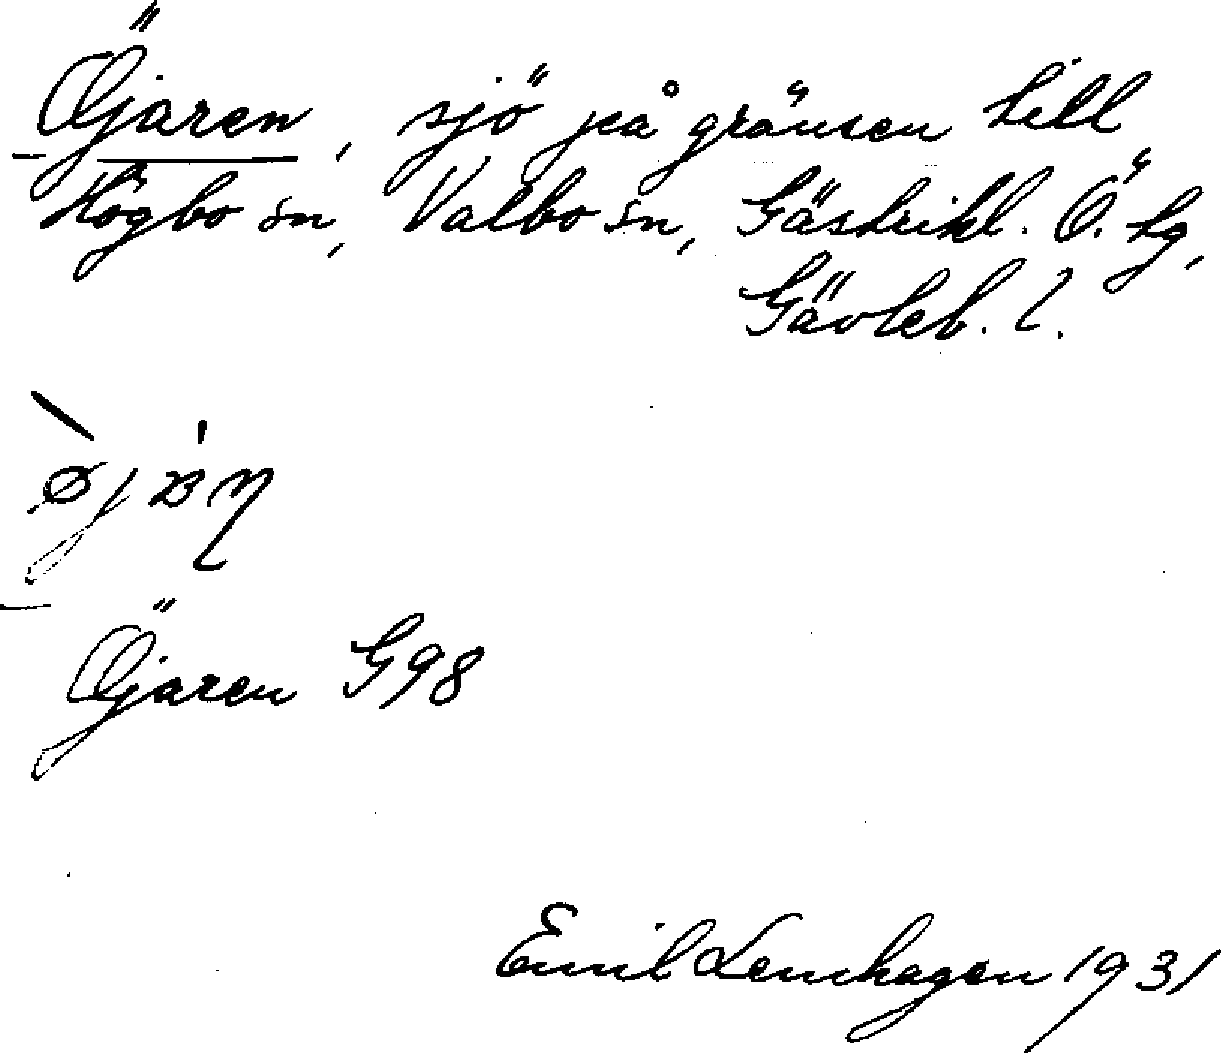 Öjaren, sjö på gränsen till
Högbo sn, Valbo sn, Gästrikl. Ö. tg,
Gävleb. l.
Öjaren G98
Emil Lenhagen 1931